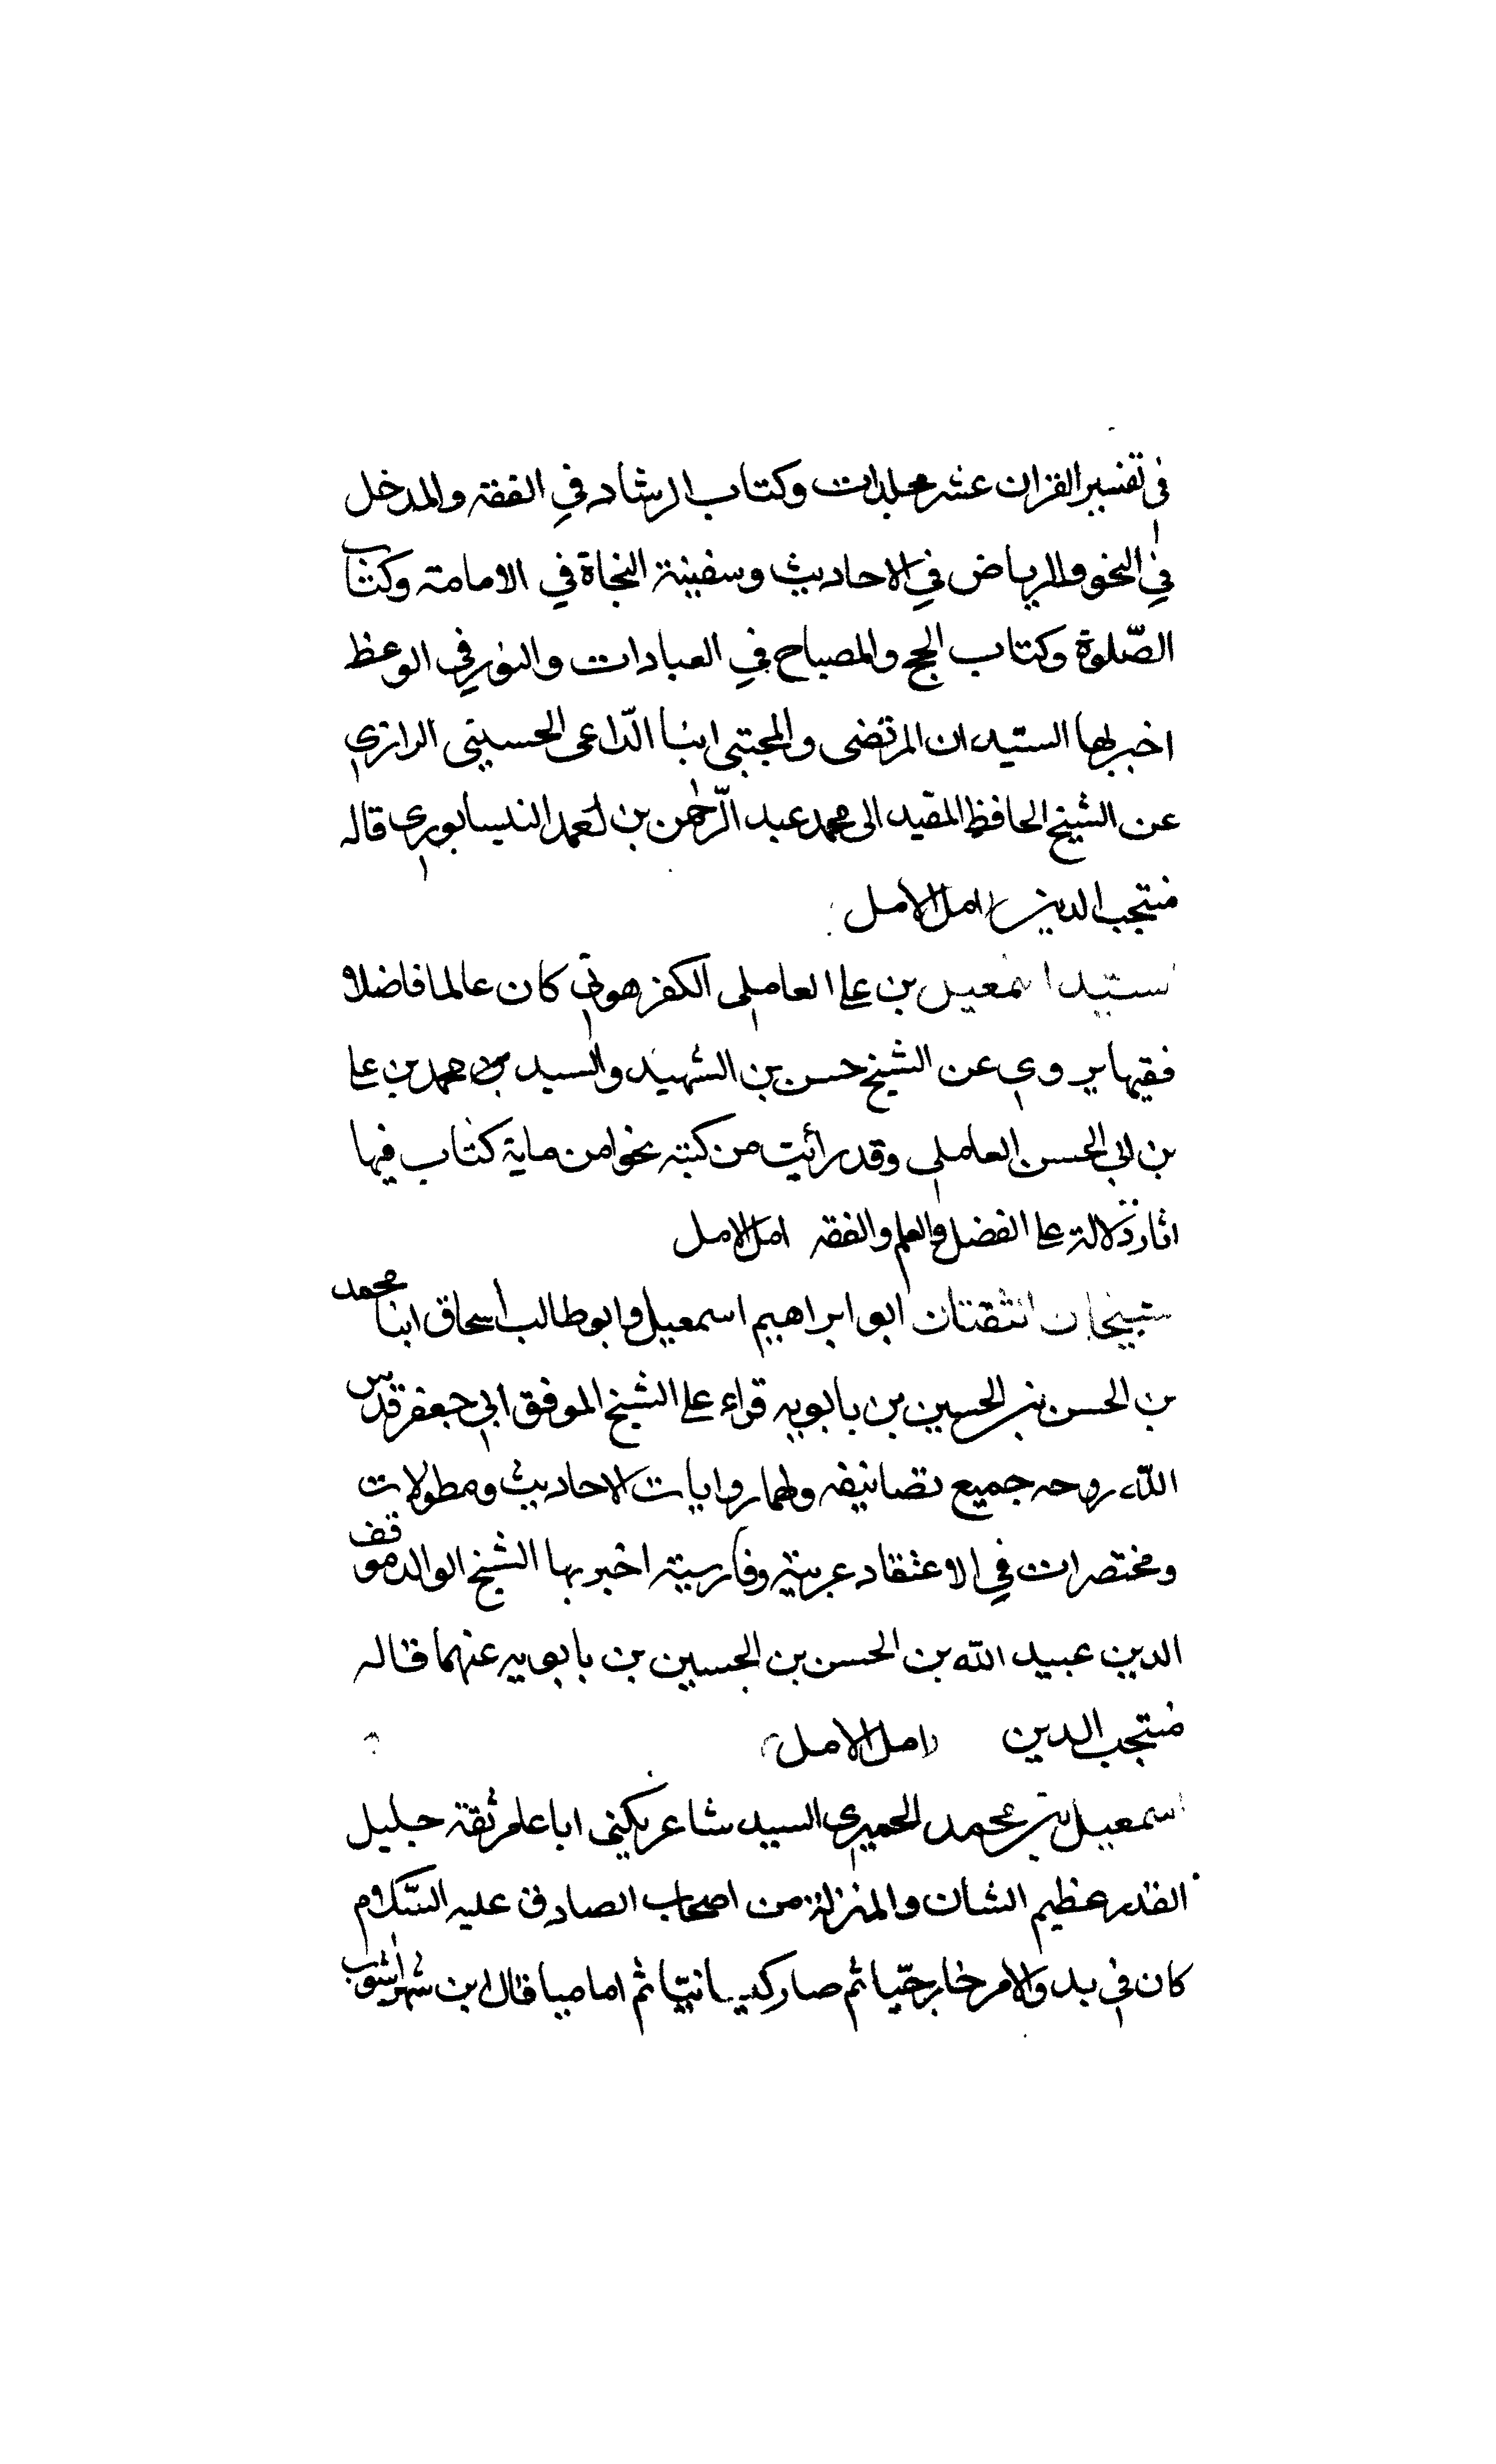 في تفسير القران عشر مجلدات وكتاب الرشاد في الفقه والمدخل
في النحو والرياض في الاحاديث وسفينة النجاة في الامامة وكتاب
الصّلوة وكتاب الحج والمصباح في العبادات والنور في الوعظ
اخبر بها السيدان المرتضى والمجتبى ابنا الدّاعى الحسيني الرازي
عن الشيخ الحافظ المفيد ابى محمد عبد الرّحمن بن احمد النيسابوري قاله
منتجب الدين امل الامل
السيد اسمعيل بن على العاملي الكفرهوني كان عالما فاضلا
فقيها يروي عن الشيخ حسن بن الشهيد والسيد محمد بن على
بن ابي الحسن العاملي وقد رأيت من كتبه نحوا من ماية كتاب فيها
اثار دلالة على الفضل والعلم والفقه امل الامل
الشيخان الثقتان ابو ابراهيم اسمعيل وابو طالب اسحاق ابنا محمد
بن الحسن بن الحسين بن بابويه قراء على الشيخ الموفق ابي جعفر قدس
اللّه روحه جميع تصانيفه ولهما روايات الاحاديث ومطولات
ومختصرات في الاعتقاد عربية وفارسية اخبر بها الشيخ الوالد موفق
الدين عبيد الله بن الحسن بن الحسين بن بابويه عنهما قاله
منتجب الدين امل الامل
اسمعيل بن محمد الحميري السيد شاعر يكنى ابا عامر ثقة جليل
القدر عظيم الشان والمنزلة من اصحاب الصادق عليه السّلام
كان في بدو الامر خارجيّا ثم صار كيسانيّا ثم اماميا قال ابن شهراشوب